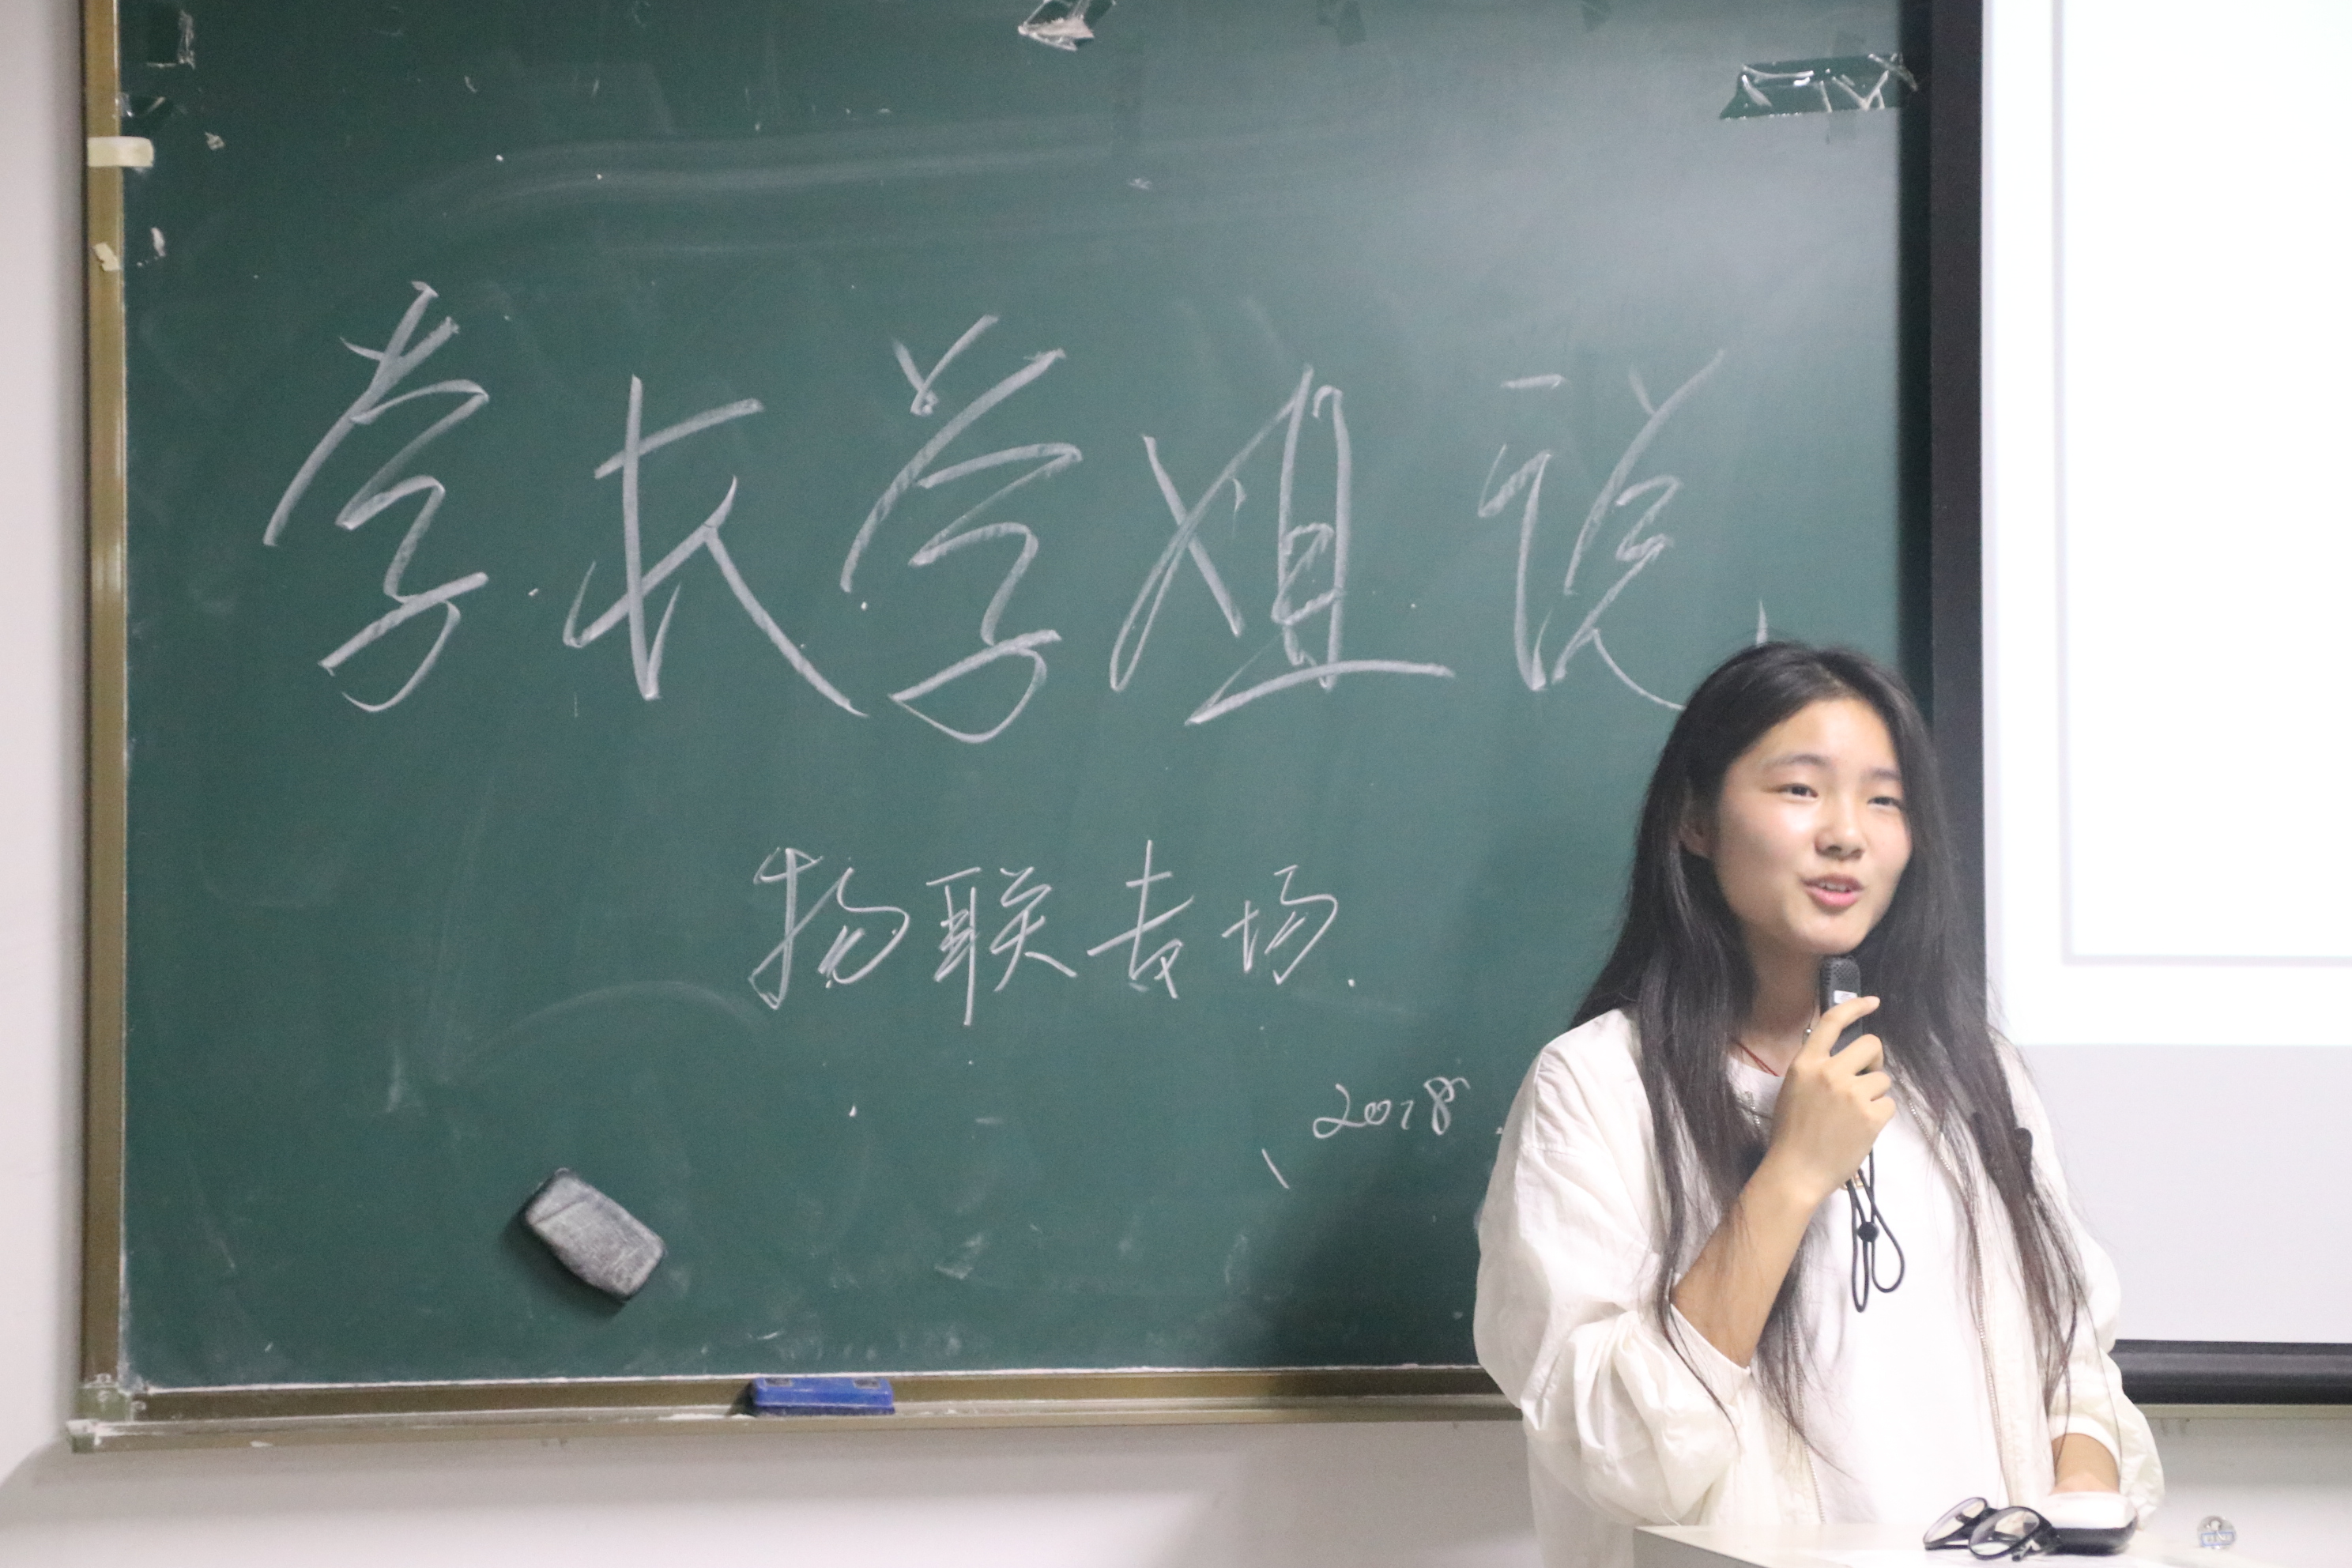 学长学姐说
物联专场.
2018.